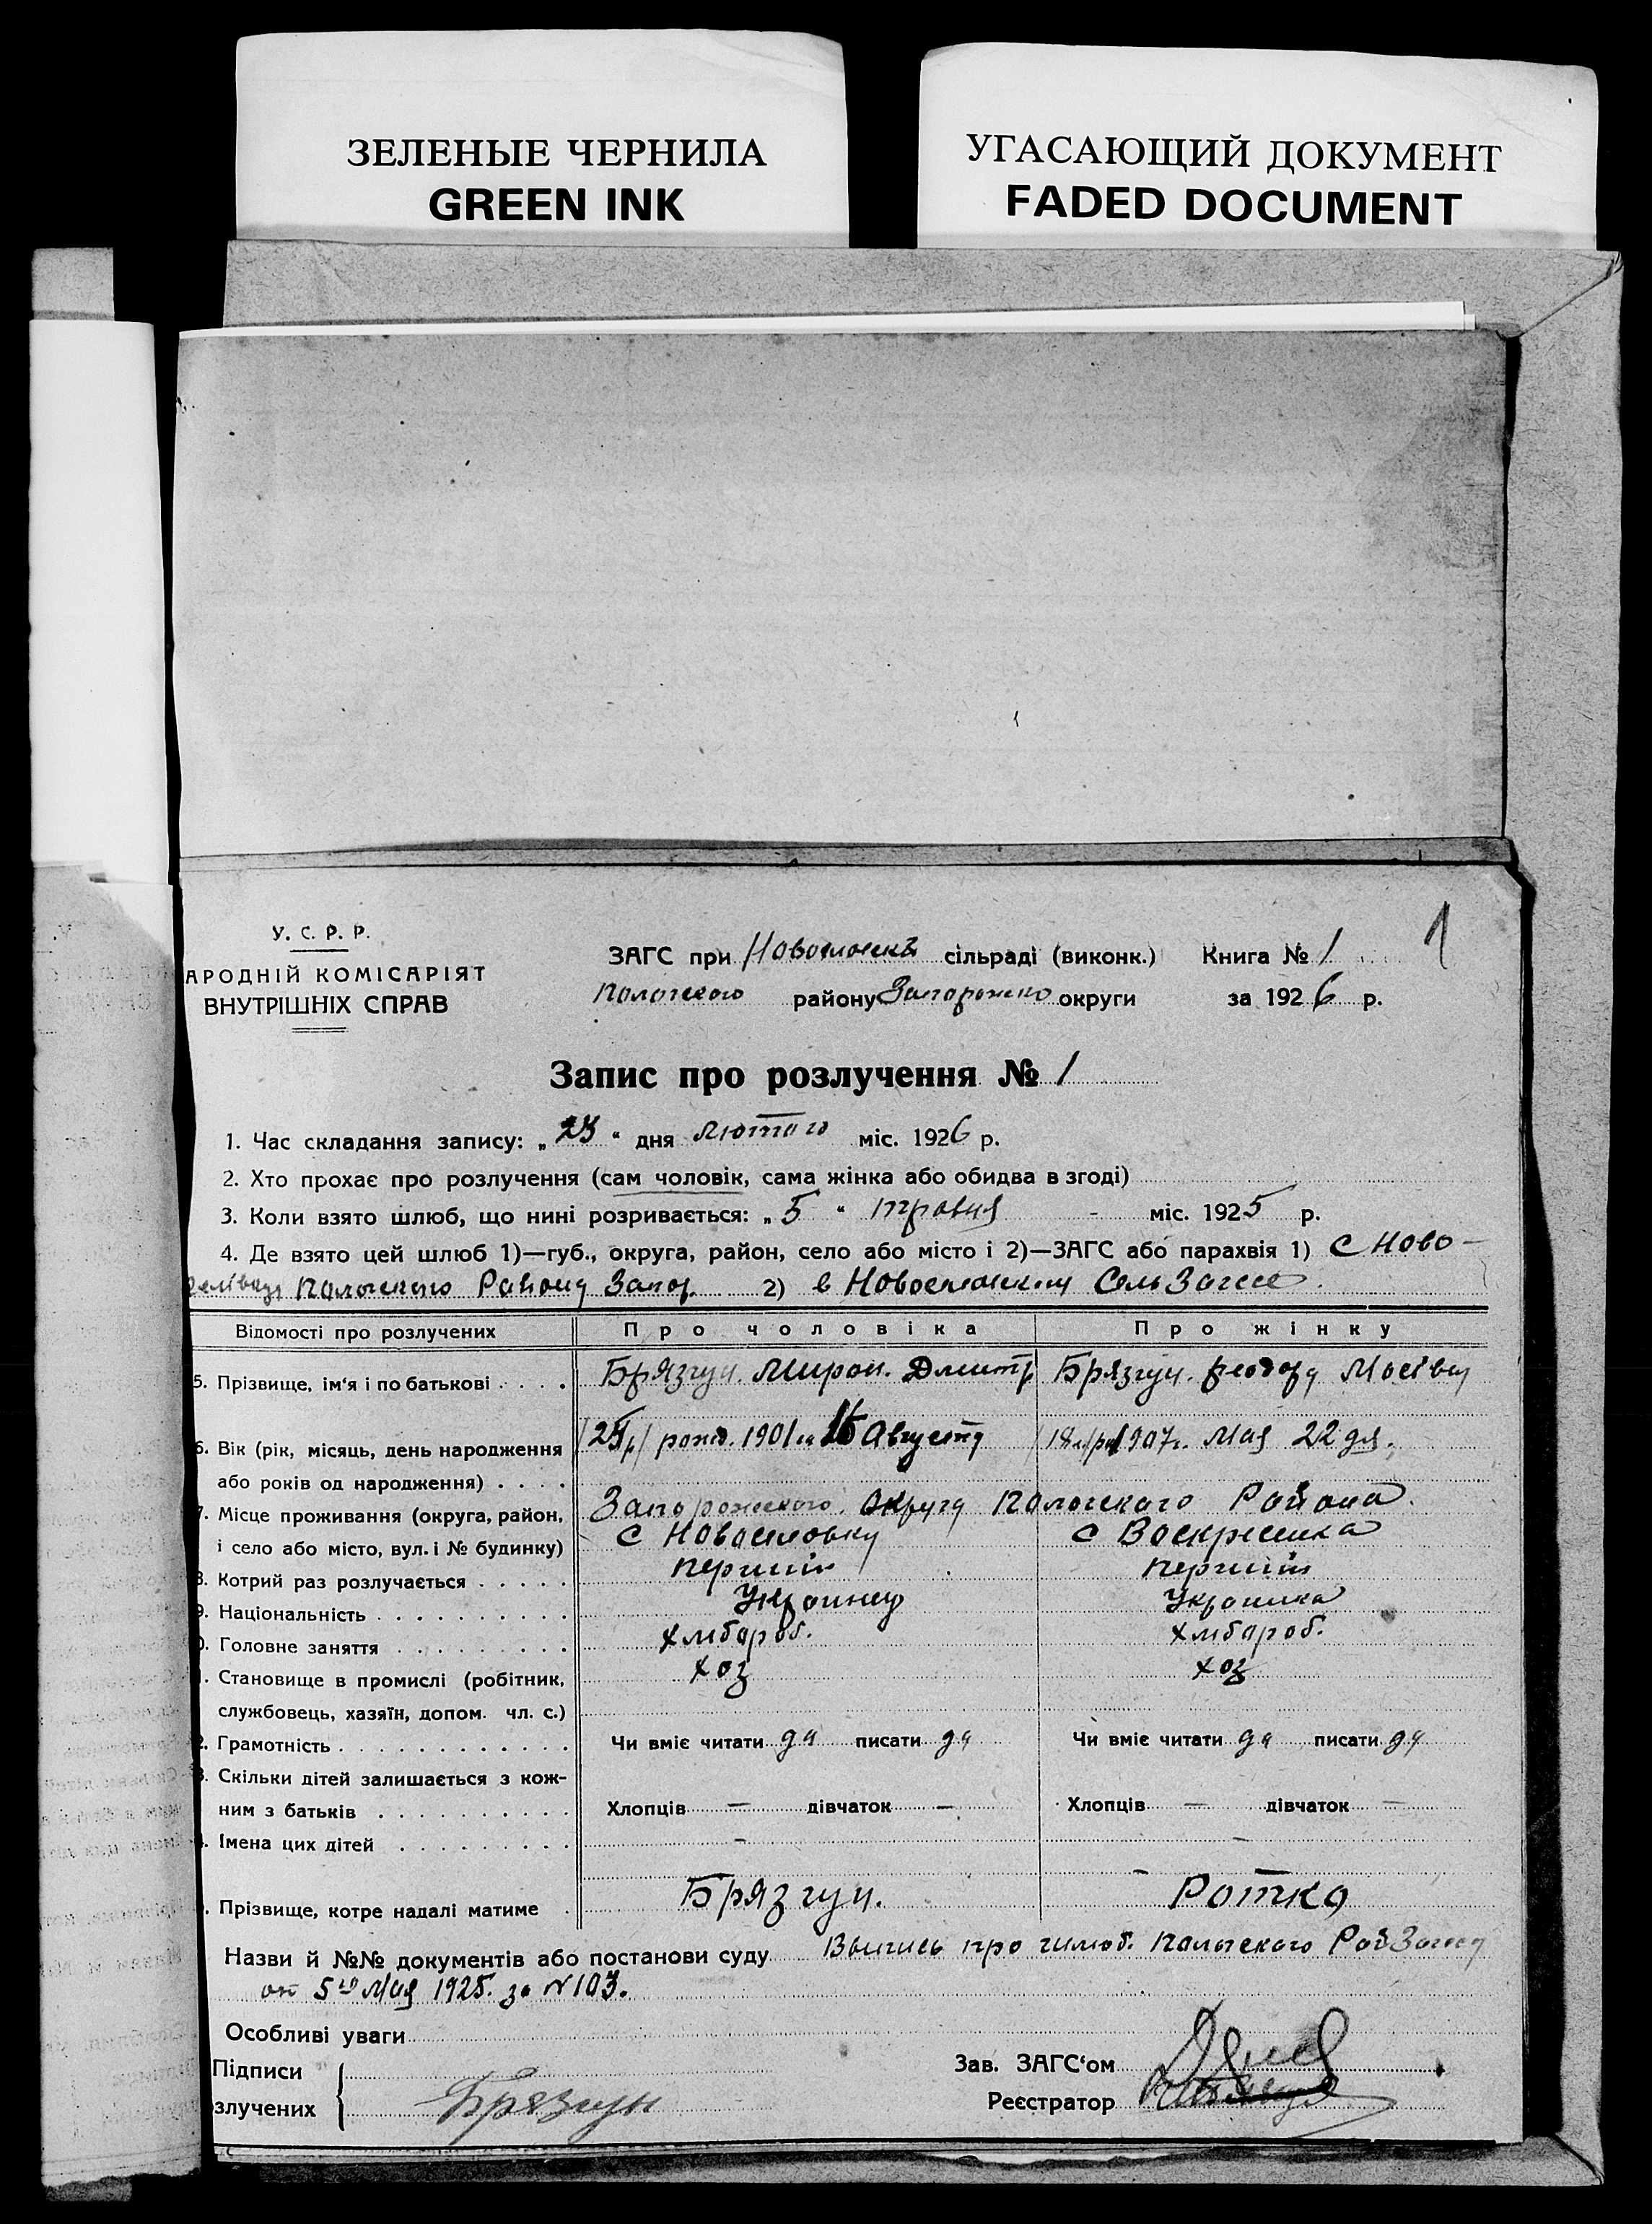 ЗЕЛЕНЫЕ ЧЕРНИЛА
GREEN INK
УГАСАЮЩИЙ ДОКУМЕНТ
FADED DOCUMENT
1
У. С. Р. Р.
АРОДНІЙ КОМІСАРІЯТ
ВНУТРІШНІХ СПРАВ
ЗАГС при сільраді (виконк.) Книга № 1
Пологского району Запорожско округи за 1926 р.
Запис про розлучення № 1
1. Час складання запису: „ “ дня лютого міс. 1926 р.
2. Хто прохає про розлучення (сам чоловік, сама жінка або обидва в згоді)
3. Коли взято шлюб, що нині розривається: „ 5 “ травня - міс. 1925 р.
4. Де взято цей шлюб 1)—губ., округа, район, село або місто і 2)—ЗАГС або парахвія 1) с Ново-
селівци Пологского Району Запор. 2) в Новоселовским СельЗагсе.
Відомості про розлучених Про чоловіка Про жінку
5. Прізвище, ім‘я і по батькові . . . . Брязгун. Мирон. Дмитр Брязгун. Феодора Мосівна
6. Вік (рік, місяць, день народження рожд. 1901 Августа 1907г. Мая 22 дня.
або років од народження) . . . .
7. Місце проживання (округа, район, Запорожского округу Пологского Района.
і село або місто, вул. і № будинку) с Новоселовку с Воскресенка
8. Котрий раз розлучається . . . . . перший перший
9. Національність . . . . . . . . . . Украинец Украинка
0. Головне заняття . . . . . . . . . хлібороб. хлібороб.
1. Становище в промислі (робітник, хоз хоз
службовець, хазяїн, допом. чл. с.)
2. Грамотність . . . . . . . . . . . . Чи вміє читати да писати да Чи вміє читати да писати да
3. Скільки дітей залишається з кож-
ним з батьків . . . . . . . . . . Хлопців — дівчаток — Хлопців — дівчаток —
. Імена цих дітей . . . . . . . . . - -
. Прізвище, котре надалі матиме . Брязгун. Ротко
Назви й №№ документів або постанови суду Выпись про шлюб. Пологского РайЗагса
от 5го Мая 1925. за №103.
Особливі уваги
Підписи Зав. ЗАГС‘ом
злучених Брязгун Реєстратор